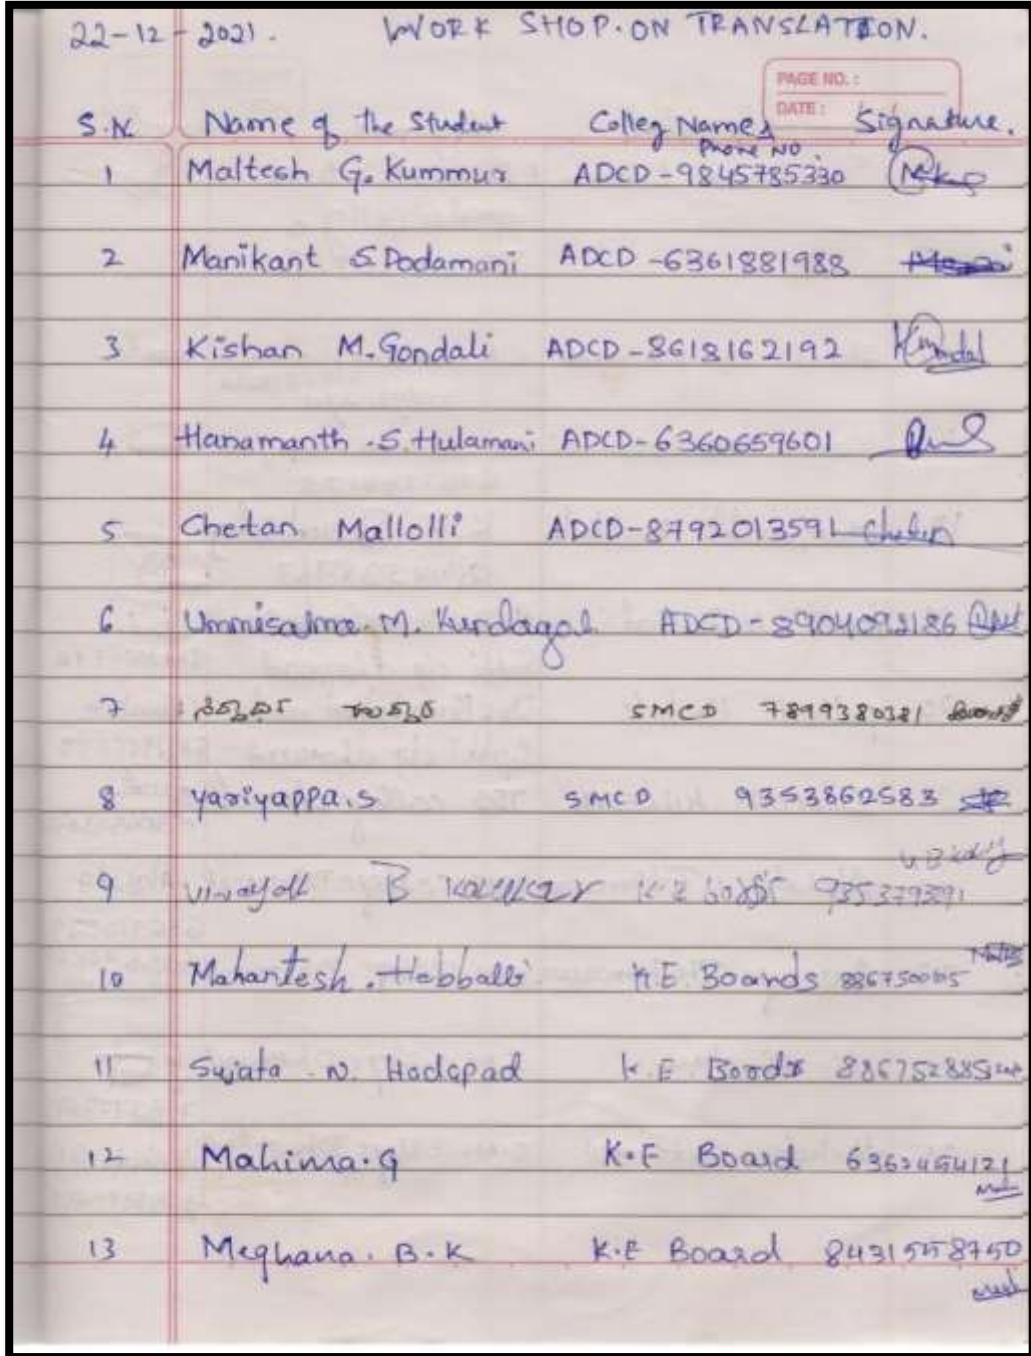 22-12-2021. WORK SHOP.ON TRANSLATION.
PAGE NO. :
DATE :
S.N. Name of the Student Colleg Names Signature.
Phone NO.
1 Maltesh G. Kummur ADCD-9845785330
2 Manikant S.Dodamani ADCD-6361881988
3 Kishan M.Gondali ADCD-8618162192
4 Hanamanth .S.Hulamani ADCD-6360659601
5 Chetan Mallolli ADCD-8792013591 Chetan
6 Ummisalma.M. Kurdagal ADCD-8904092186
7 SMCD 7899380381
8 yariyappa.s SMCD 9353862583
9 B K.E
10 Mahantesh . Hebballi K.E Boards
11 Sujata .N. Hadapad K.E Boards
12 Mahima.G K.E Board 6362454121
13 Meghana. B.K K.E Board 8431558750